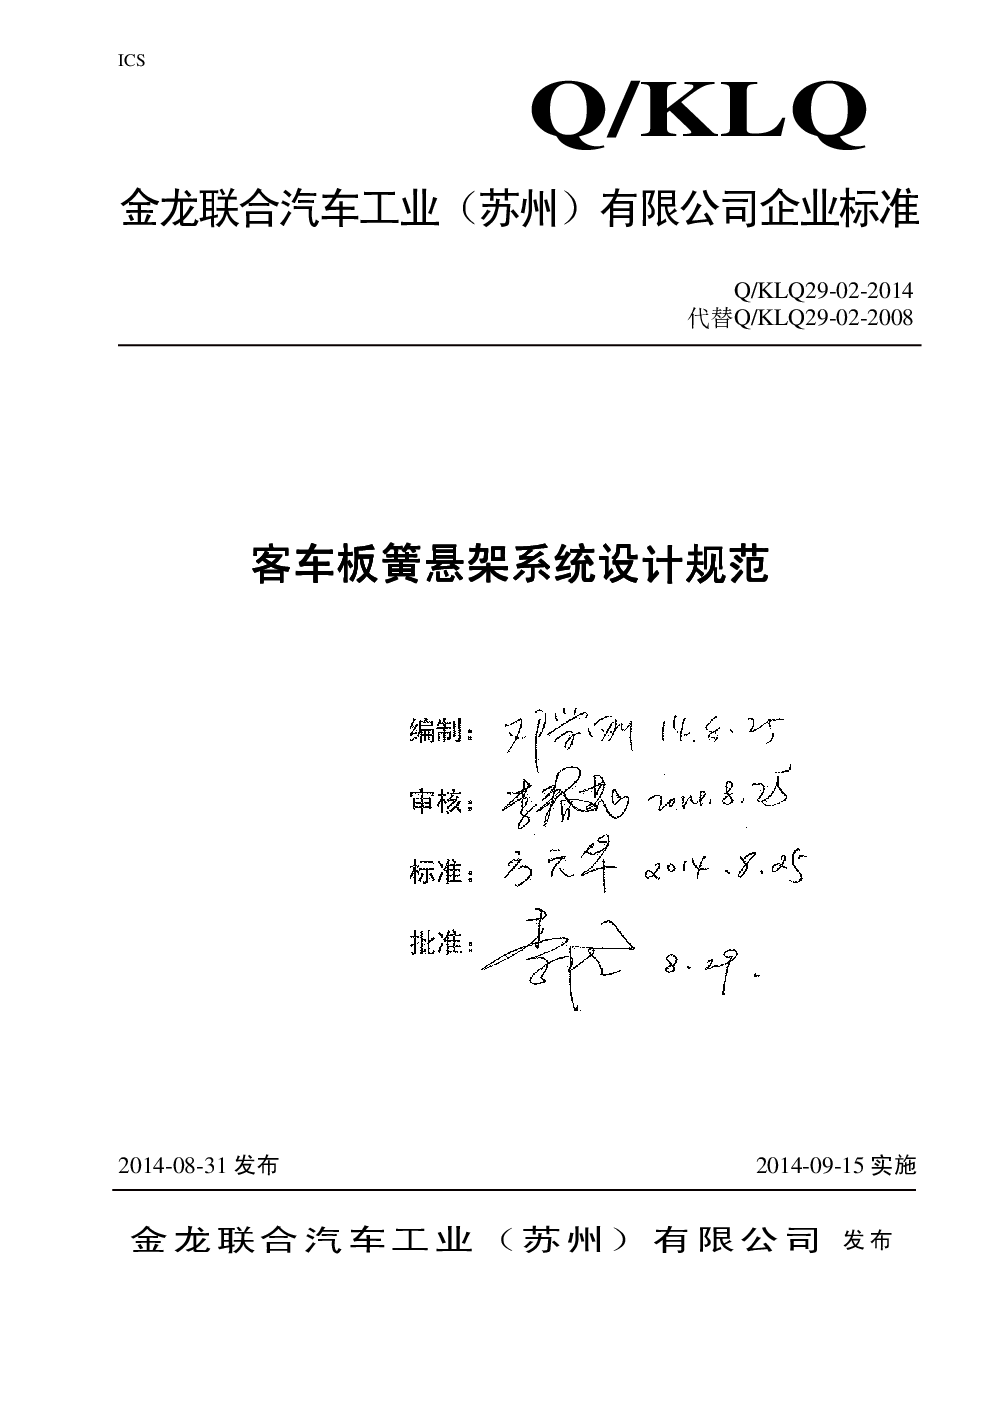 ICS
Q/KLQ
金龙联合汽车工业（苏州）有限公司企业标准
Q/KLQ29-02-2014
代替Q/KLQ29-02-2008
客车板簧悬架系统设计规范
编制： 14.8.25
审核： 2014.8.25
标准： 2014.8.25
批准： 8.29.
2014-08-31 发布 2014-09-15 实施
金龙联合汽车工业（苏州）有限公司 发布